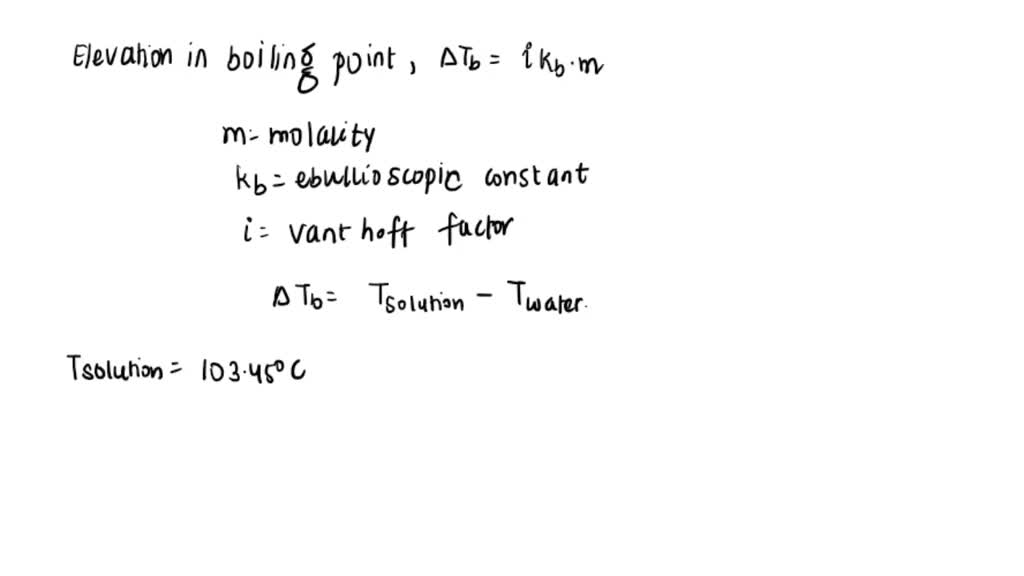 Elevation in boiling point, ΔTb = i kb·m
m = molality
kb = ebullioscopic constant
i = vant hoff factor
ΔTb = Tsolution - Twater.
Tsolution = 103.45°C